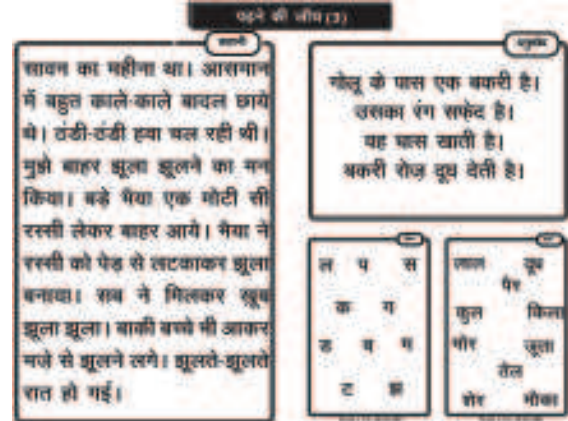 पढ़ने की जाँच (3)
कहानी
सावन का महीना था। आसमान
में बहुत काले-काले बादल छाये
थे। ठंडी-ठंडी हवा चल रही थी।
मुझे बाहर झूला झूलने का मन
किया। बड़े भैया एक मोटी सी
रस्सी लेकर बाहर आये। भैया ने
रस्सी को पेड़ से लटकाकर झूला
बनाया। सब ने मिलकर खूब
झूला झूला। बाकी बच्चे भी आकर
मजे से झूलने लगे। झूलते-झूलते
रात हो गई।
अनुच्छेद
गोलू के पास एक बकरी है।
उसका रंग सफ़ेद है।
यह घास खाती है।
बकरी रोज़ दूध देती है।
ल प स
क ग
ड म
ट झ
लाल दूध
पैर
कुल किला
मोर जूता
तेल
शेर मौका